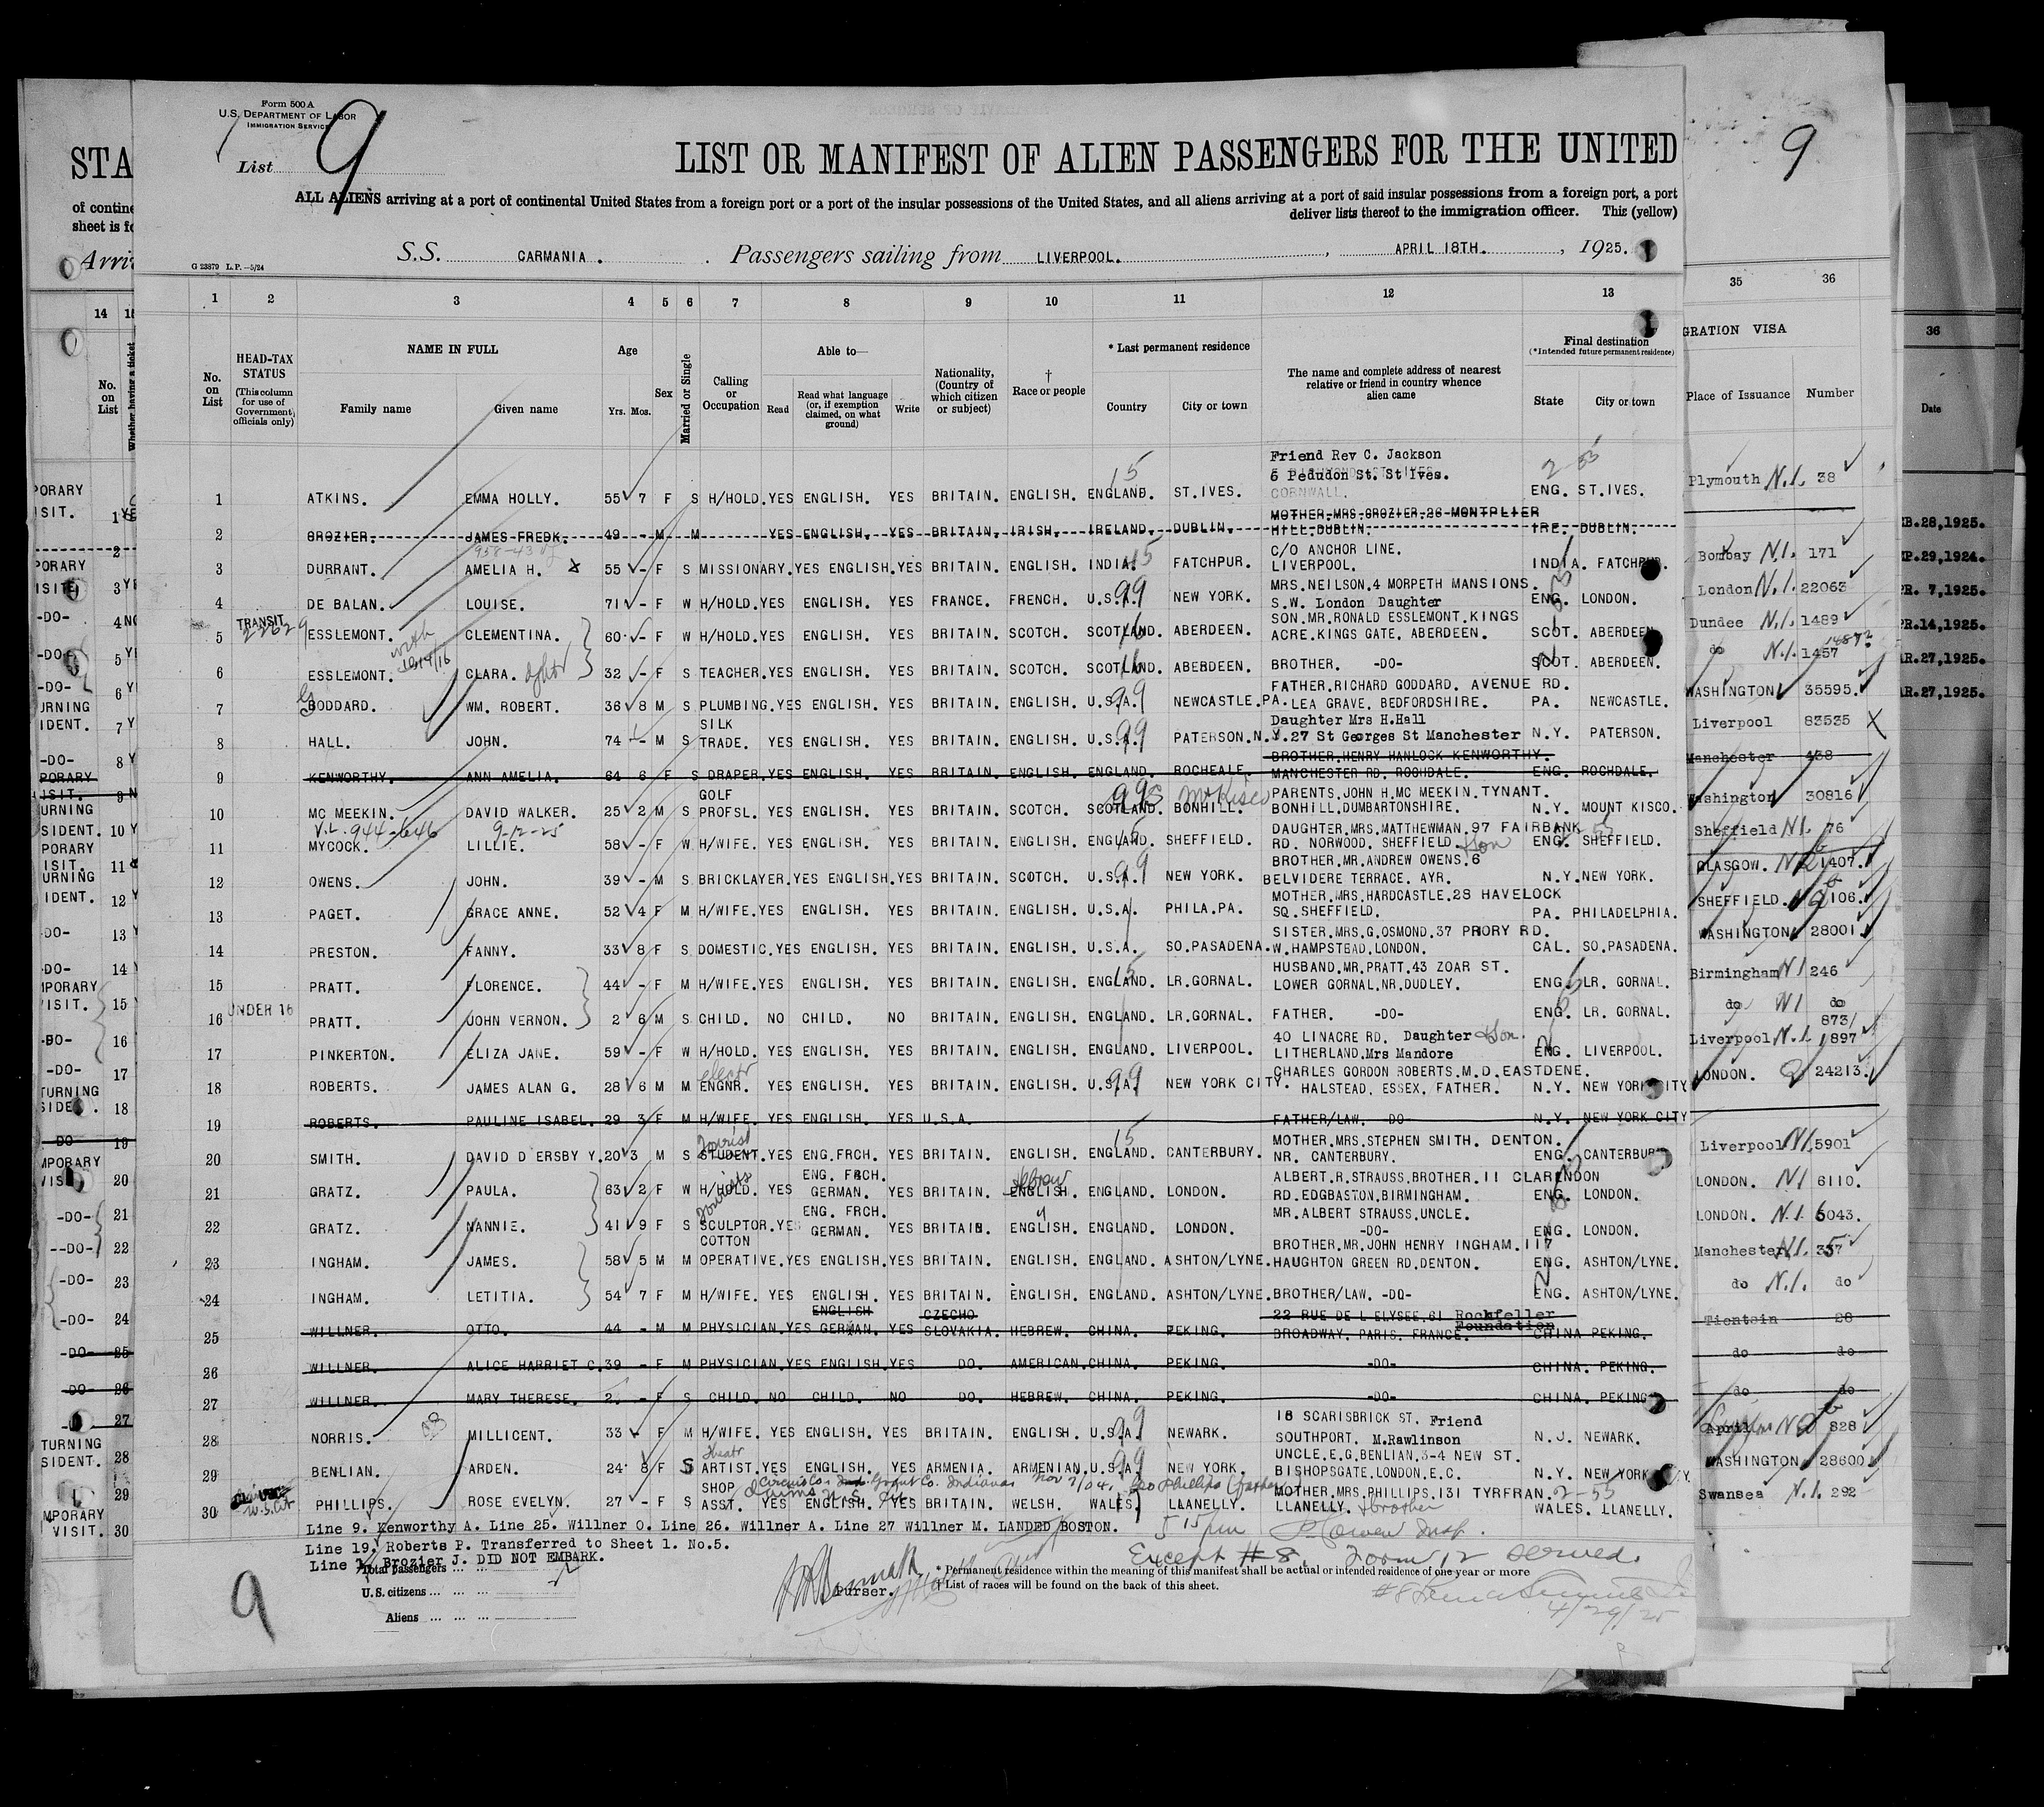 Form 500 A
U.S. DEPARTMENT OF LABOR
IMMIGRATION SERVICE
List 9
LIST OR MANIFEST OF ALIEN PASSENGERS FOR THE UNITED
ALL ALIENS arriving at a port of continental United States from a foreign port or a port of the insular possessions of the United States, and all aliens arriving at a port of said insular possessions from a foreign port, a port
deliver lists thereof to the immigration officer. This (yellow)
G 23879 L.P.—5/24
S.S. CARMANIA. Passengers sailing from LIVERPOOL., APRIL 18TH., 1925.
1 2 3 4 5 6 7 8 9 10 11 12 13
No. on List
HEAD-TAX STATUS
(This column for use of Government officials only)
NAME IN FULL
Family name Given name
Age
Yrs. Mos.
Sex
Married or Single
Calling or Occupation
Able to—
Read
Read what language (or, if exemption claimed, on what ground)
Write
Nationality, (Country of which citizen or subject)
† Race or people
* Last permanent residence
Country City or town
The name and complete address of nearest relative or friend in country whence alien came
Final destination
(*Intended future permanent residence)
State City or town
Friend Rev C. Jackson
5 Pedudon St. St Ives.
CORNWALL.
1 ATKINS. EMMA HOLLY. 55 7 F S H/HOLD. YES ENGLISH. YES BRITAIN. ENGLISH. ENGLAND. ST.IVES. ENG. ST.IVES.
MOTHER.MRS.CROZIER.26 MONTPLIER
2 CROZIER. JAMES FREDK. 49 - M M YES ENGLISH. YES BRITAIN. IRISH. IRELAND. DUBLIN. HILL.DUBLIN. IRE. DUBLIN.
C/O ANCHOR LINE.
3 DURRANT. AMELIA H. X 55 - F S MISSIONARY. YES ENGLISH. YES BRITAIN. ENGLISH. INDIA. FATCHPUR. LIVERPOOL. INDIA. FATCHPUR.
MRS.NEILSON.4 MORPETH MANSIONS.
4 DE BALAN. LOUISE. 71 - F W H/HOLD. YES ENGLISH. YES FRANCE. FRENCH. U.S.A. NEW YORK. S.W. London Daughter ENG. LONDON.
TRANSIT
SON.MR.RONALD ESSLEMONT.KINGS
5 ESSLEMONT. CLEMENTINA. 60 - F W H/HOLD. YES ENGLISH. YES BRITAIN. SCOTCH. SCOTLAND. ABERDEEN. ACRE.KINGS GATE. ABERDEEN. SCOT. ABERDEEN.
6 ESSLEMONT. CLARA. 32 - F S TEACHER. YES ENGLISH. YES BRITAIN. SCOTCH. SCOTLAND. ABERDEEN. BROTHER. -DO- SCOT. ABERDEEN.
FATHER.RICHARD GODDARD. AVENUE RD.
7 GODDARD. WM. ROBERT. 36 8 M S PLUMBING. YES ENGLISH. YES BRITAIN. ENGLISH. U.S.A. NEWCASTLE.PA. LEA GRAVE. BEDFORDSHIRE. PA. NEWCASTLE.
SILK
Daughter Mrs H.Hall
8 HALL. JOHN. 74 - M S TRADE. YES ENGLISH. YES BRITAIN. ENGLISH. U.S.A. PATERSON.N.Y. 27 St Georges St Manchester N.Y. PATERSON.
BROTHER.HENRY HANLOCK KENWORTHY.
9 KENWORTHY. ANN AMELIA. 64 6 F S DRAPER. YES ENGLISH. YES BRITAIN. ENGLISH. ENGLAND. ROCHEALE. MANCHESTER RD. ROCHDALE. ENG. ROCHDALE.
GOLF
PARENTS.JOHN H.MC MEEKIN.TYNANT.
10 MC MEEKIN. DAVID WALKER. 25 2 M S PROFSL. YES ENGLISH. YES BRITAIN. SCOTCH. SCOTLAND. BONHILL. BONHILL.DUMBARTONSHIRE. N.Y. MOUNT KISCO.
V.L. 944-646 9-12-25
DAUGHTER.MRS.MATTHEWMAN.97 FAIRBANK
11 MYCOCK. LILLIE. 58 - F W H/WIFE. YES ENGLISH. YES BRITAIN. ENGLISH. ENGLAND. SHEFFIELD. RD. NORWOOD. SHEFFIELD. ENG. SHEFFIELD.
BROTHER.MR.ANDREW OWENS.6
12 OWENS. JOHN. 39 - M S BRICKLAYER. YES ENGLISH. YES BRITAIN. SCOTCH. U.S.A. NEW YORK. BELVIDERE TERRACE. AYR. N.Y. NEW YORK.
MOTHER.MRS.HARDCASTLE.28 HAVELOCK
13 PAGET. GRACE ANNE. 52 4 F M H/WIFE. YES ENGLISH. YES BRITAIN. ENGLISH. U.S.A. PHILA.PA. SQ.SHEFFIELD. PA. PHILADELPHIA.
SISTER.MRS.G.OSMOND.37 PRIORY RD.
14 PRESTON. FANNY. 33 8 F S DOMESTIC. YES ENGLISH. YES BRITAIN. ENGLISH. U.S.A. SO.PASADENA. W.HAMPSTEAD.LONDON. CAL. SO.PASADENA.
HUSBAND.MR.PRATT.43 ZOAR ST.
15 PRATT. FLORENCE. 44 - F M H/WIFE. YES ENGLISH. YES BRITAIN. ENGLISH. ENGLAND. LR.GORNAL. LOWER GORNAL.NR.DUDLEY. ENG. LR. GORNAL.
16 UNDER 16 PRATT. JOHN VERNON. 2 6 M S CHILD. NO CHILD. NO BRITAIN. ENGLISH. ENGLAND. LR.GORNAL. FATHER. -DO- ENG. LR. GORNAL.
40 LINACRE RD. Daughter
17 PINKERTON. ELIZA JANE. 59 - F W H/HOLD. YES ENGLISH. YES BRITAIN. ENGLISH. ENGLAND. LIVERPOOL. LITHERLAND.Mrs Mandore ENG. LIVERPOOL.
CHARLES GORDON ROBERTS.M.D.EASTDENE.
18 ROBERTS. JAMES ALAN G. 28 6 M M ENGNR. YES ENGLISH. YES BRITAIN. ENGLISH. U.S.A. NEW YORK CITY. HALSTEAD. ESSEX. FATHER. N.Y. NEW YORK CITY
19 ROBERTS. PAULINE ISABEL. 29 3 F M H/WIFE. YES ENGLISH. YES U.S.A. FATHER/LAW. -DO- N.Y. NEW YORK CITY
Tourist
MOTHER.MRS.STEPHEN SMITH. DENTON.
20 SMITH. DAVID D ERSBY Y. 20 3 M S STUDENT. YES ENG.FRCH. YES BRITAIN. ENGLISH. ENGLAND. CANTERBURY. NR. CANTERBURY. ENG. CANTERBURY.
ENG. FRCH. Hebrew ALBERT.R.STRAUSS.BROTHER.11 CLARENDON
21 GRATZ. PAULA. 63 2 F W H/HOLD. YES GERMAN. YES BRITAIN. ENGLISH. ENGLAND. LONDON. RD.EDGBASTON.BIRMINGHAM. ENG. LONDON.
ENG. FRCH. MR.ALBERT STRAUSS.UNCLE.
22 GRATZ. NANNIE. 41 9 F S SCULPTOR. YES GERMAN. YES BRITAIN. ENGLISH. ENGLAND. LONDON. -DO- ENG. LONDON.
COTTON
BROTHER.MR.JOHN HENRY INGHAM.117
23 INGHAM. JAMES. 58 5 M M OPERATIVE. YES ENGLISH. YES BRITAIN. ENGLISH. ENGLAND. ASHTON/LYNE. HAUGHTON GREEN RD.DENTON. ENG. ASHTON/LYNE.
24 INGHAM. LETITIA. 54 7 F M H/WIFE. YES ENGLISH. YES BRITAIN. ENGLISH. ENGLAND. ASHTON/LYNE. BROTHER/LAW. -DO- ENG. ASHTON/LYNE.
ENGLISH CZECHO 22 RUE DE L ELYSEE.61 Rockfeller Foundation
25 WILLNER. OTTO. 44 - M M PHYSICIAN. YES GERMAN. YES SLOVAKIA. HEBREW. CHINA. PEKING. BROADWAY. PARIS. FRANCE. CHINA PEKING.
26 WILLNER. ALICE HARRIET C. 39 - F M PHYSICIAN. YES ENGLISH. YES DO. AMERICAN. CHINA. PEKING. -DO- CHINA. PEKING.
27 WILLNER. MARY THERESE. 2 - F S CHILD. NO CHILD. NO DO. HEBREW. CHINA. PEKING. -DO- CHINA. PEKING.
18 SCARISBRICK ST. Friend
28 NORRIS. MILLICENT. 33 - F M H/WIFE. YES ENGLISH. YES BRITAIN. ENGLISH. U.S.A. NEWARK. SOUTHPORT. M.Rawlinson N.J. NEWARK.
UNCLE.E.G.BENLIAN.3-4 NEW ST.
29 BENLIAN. ARDEN. 24 8 F S ARTIST. YES ENGLISH. YES ARMENIA. ARMENIAN. U.S.A. NEW YORK. BISHOPSGATE.LONDON.E.C. N.Y. NEW YORK CITY.
SHOP
MOTHER.MRS.PHILLIPS.131 TYRFRAN.
30 PHILLIPS. ROSE EVELYN. 27 - F S ASST. YES ENGLISH. YES BRITAIN. WELSH. WALES. LLANELLY. LLANELLY. brother WALES. LLANELLY.
Line 9. Kenworthy A. Line 25. Willner O. Line 26. Willner A. Line 27 Willner M. LANDED BOSTON.
Line 19. Roberts P. Transferred to Sheet 1. No.5.
Line 2. Brozier J. DID NOT EMBARK.
Except #8. Form 12 served.
Total passengers
U.S. citizens
Aliens
9
Purser.
* Permanent residence within the meaning of this manifest shall be actual or intended residence of one year or more
† List of races will be found on the back of this sheet.
4/29/25
9
35 36
GRATION VISA
Place of Issuance Number
Plymouth N.I. 38
Bombay N.I. 171
London N.I. 22063
Dundee N.I. 1489
do N.I. 1457
WASHINGTON 35595.
Liverpool 83535 X
Manchester 438
Washington 30816
Sheffield N.I. 76
GLASGOW. 1407.
SHEFFIELD. 106.
WASHINGTON 28001
Birmingham N I 246
do N I do
873/
Liverpool N.I. 1897
LONDON. 24213.
Liverpool N.I. 5901
LONDON. N I 6110.
LONDON. N.I. 6043.
Manchester N.I. 357
do N.I. do
Tientsin 28
do do
do do
April 828
WASHINGTON 28600
Swansea N.I. 292
36
Date
28,1925.
29,1924.
7,1925.
14,1925.
27,1925.
27,1925.
STA
of contine
sheet is fo
Arri
14
No. on List
Whether having a ticket